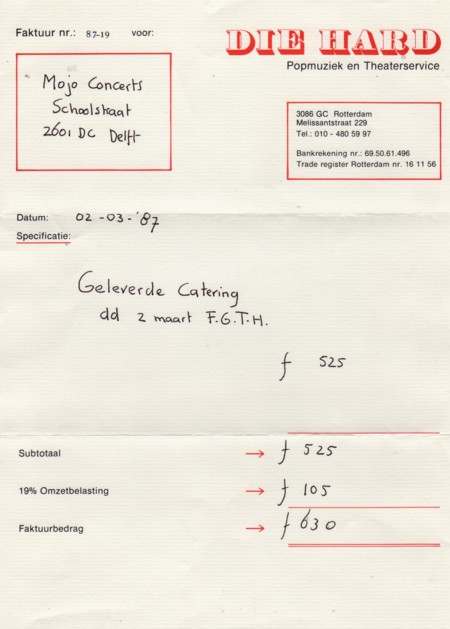 Faktuur nr.: 87-19 voor:
DIE HARD
Popmuziek en Theaterservice
Mojo Concerts
Schoolstraat
2601 DC Delft
3086 GC Rotterdam
Melissantstraat 229
Tel.: 010 - 480 59 97
Bankrekening nr.: 69.50.61.496
Trade register Rotterdam nr. 16 11 56
Datum: 02-03-'87
Specificatie:
Geleverde Catering
dd 2 maart F.G.T.H.
ƒ 525
Subtotaal → ƒ 525
19% Omzetbelasting → ƒ 105
Faktuurbedrag → ƒ 630